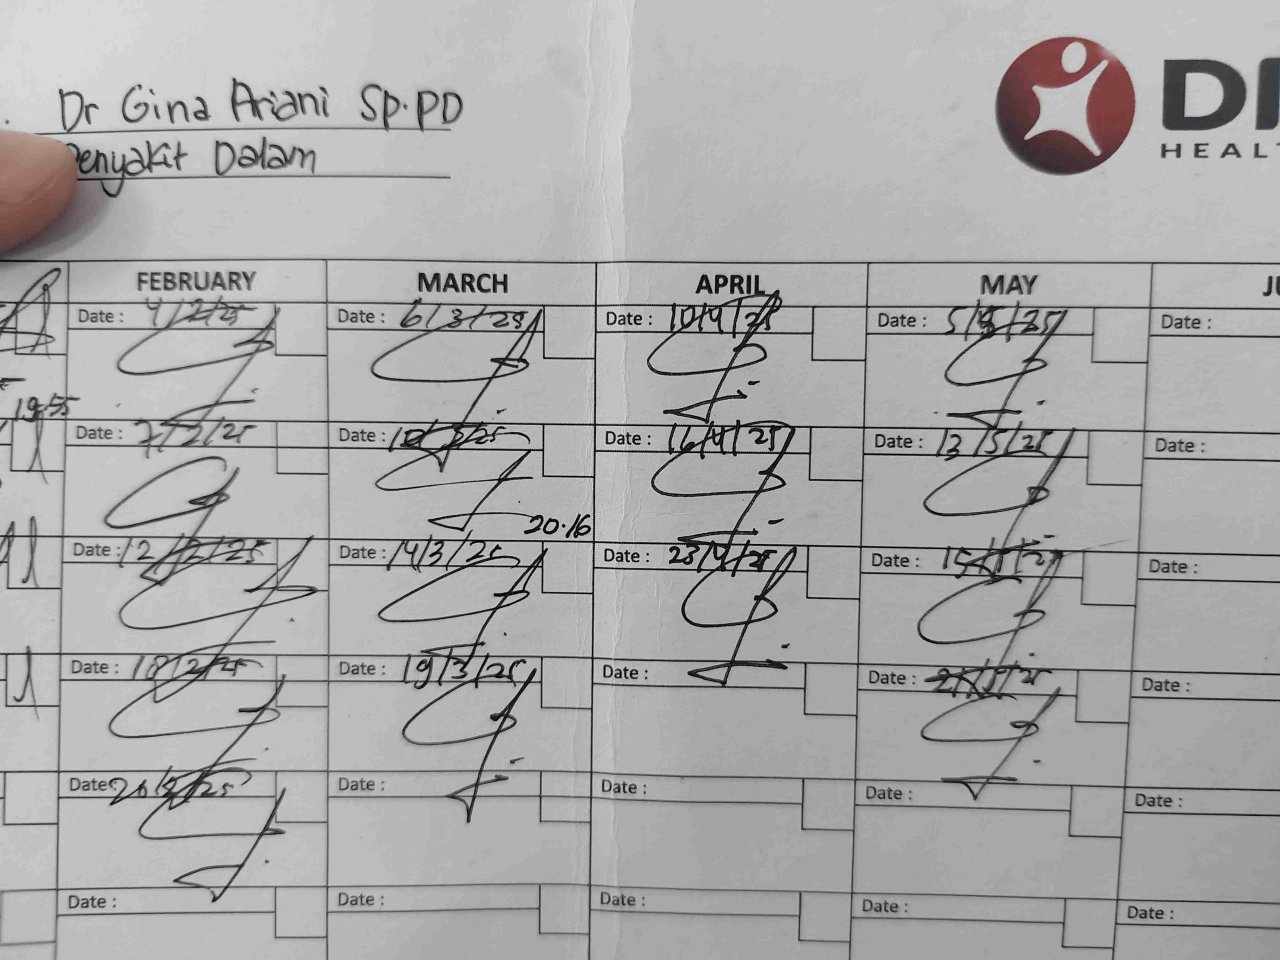 Dr Gina Ariani Sp.PD
Penyakit Dalam
DI
HEALT
FEBRUARY MARCH APRIL MAY JU
Date : 4/2/25 Date : 6/3/25 Date : 10/4/25 Date : 5/5/25 Date :
19.55
Date : 7/2/25 Date : 10/3/25 Date : 16/4/25 Date : 13/5/25 Date :
20.16
Date : 12/2/25 Date : 14/3/25 Date : 23/4/25 Date : 15/5/25 Date :
Date : 18/2/25 Date : 19/3/25 Date : Date : Date :
Date : 20/2/25 Date : Date : Date : Date :
Date : Date : Date : Date : Date :